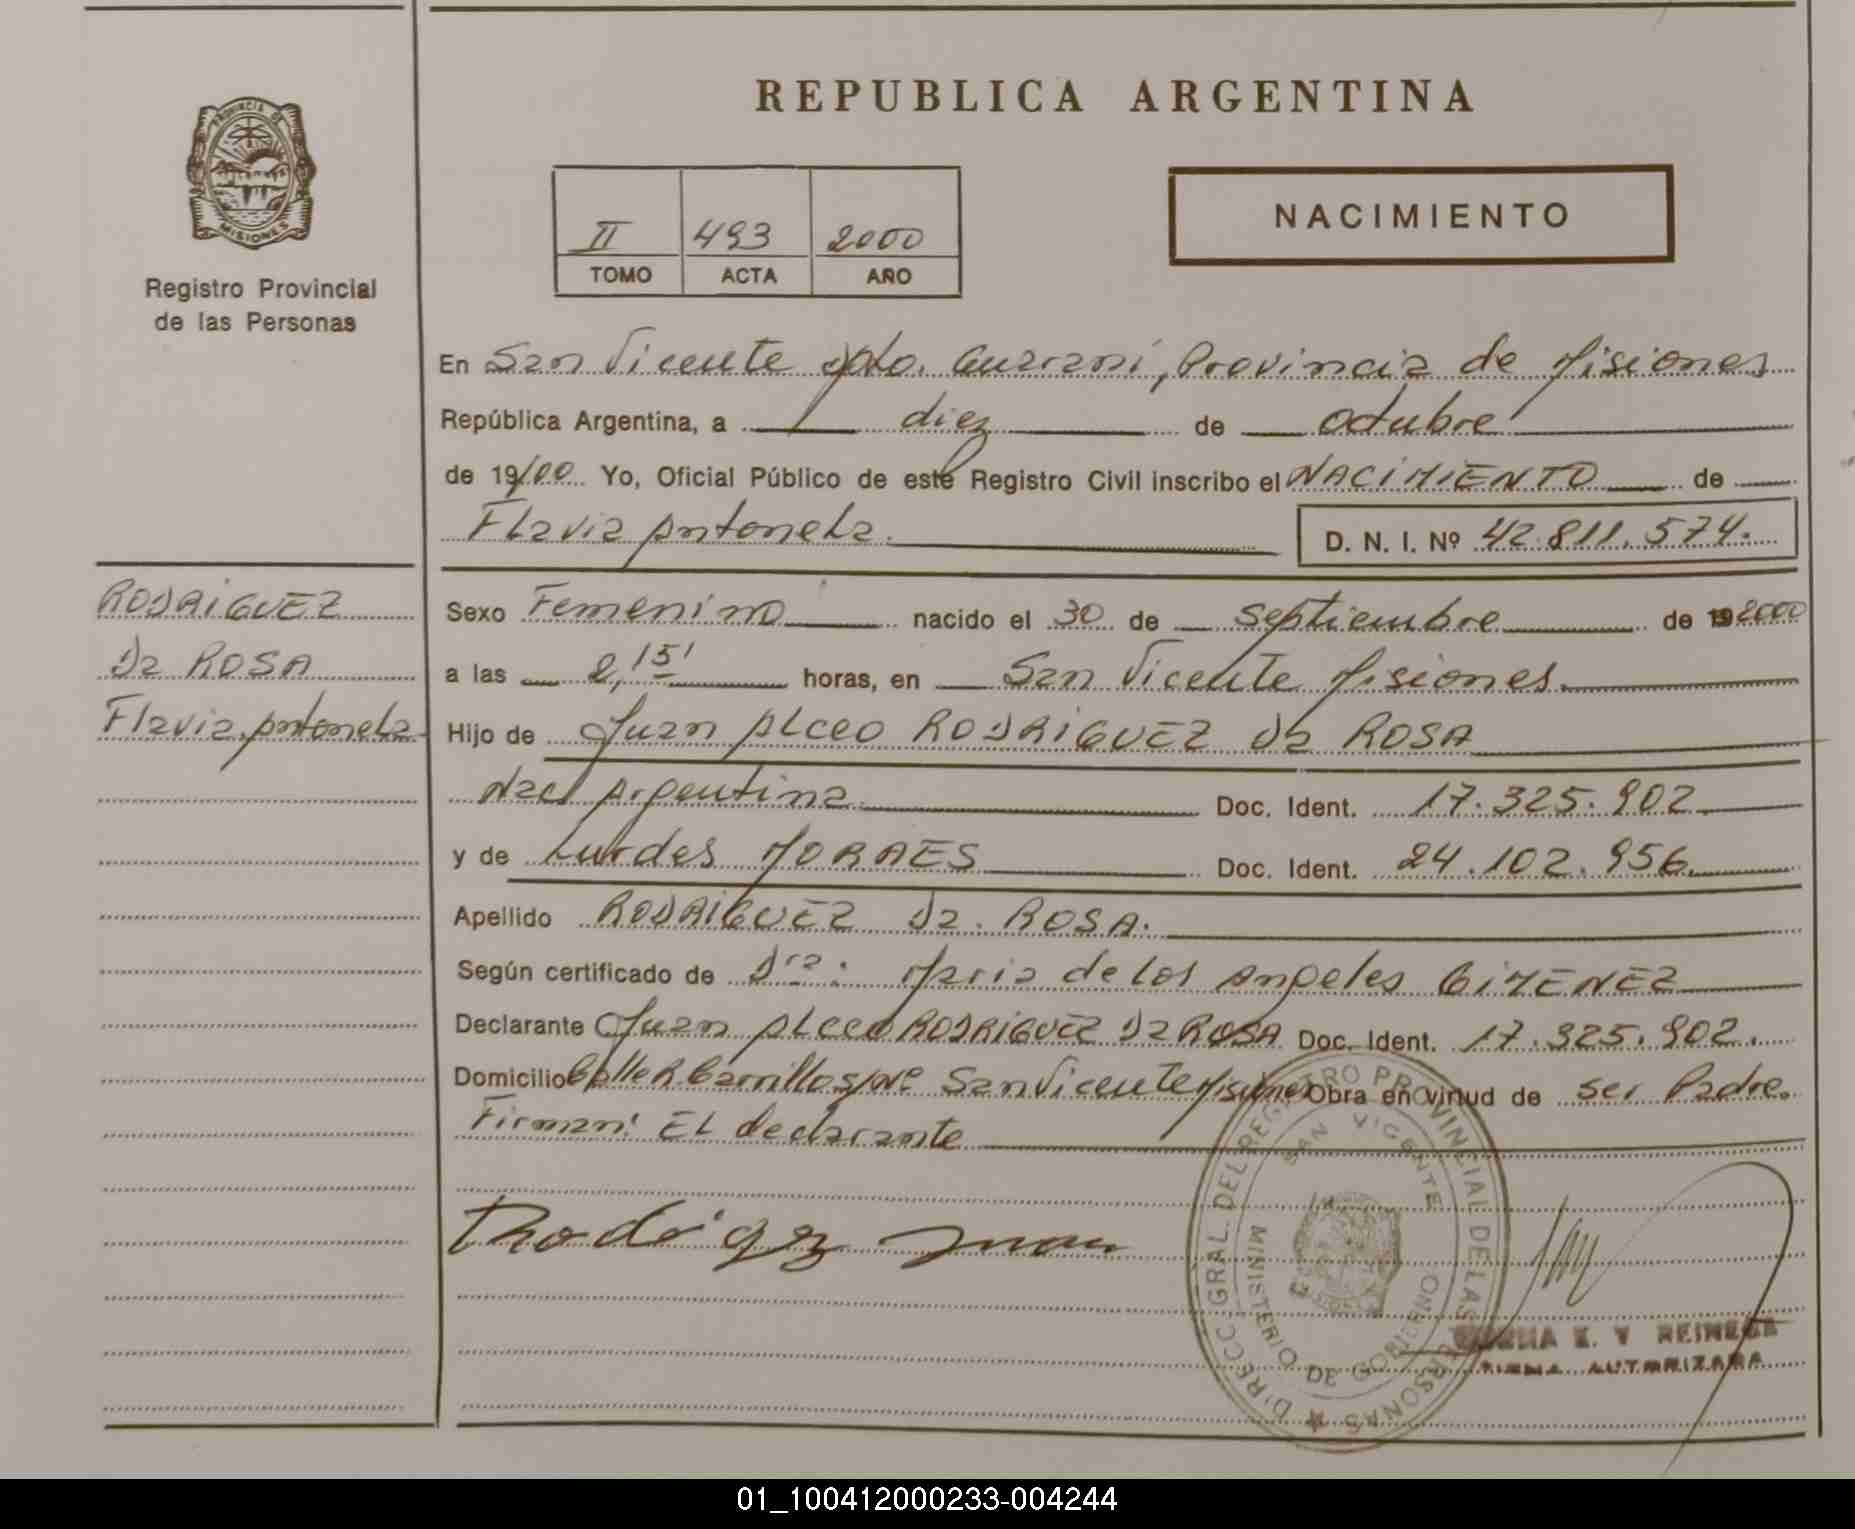 PROVINCIA DE
MISIONES
Registro Provincial
de las Personas
REPUBLICA ARGENTINA
II 493 2000
TOMO ACTA AÑO
NACIMIENTO
En San Vicente Dpto. Guarani, Provincia de Misiones
República Argentina, a diez de octubre
de 19/00 Yo, Oficial Público de este Registro Civil inscribo el NACIMIENTO de
Flavia Antonela. D. N. I. Nº 42.811.574.
RODRIGUEZ
Da ROSA
Flavia Antonela
Sexo Femenino nacido el 30 de Septiembre de 19 2000
a las 2,15' horas, en San Vicente Misiones.
Hijo de Juan Alceo RODRIGUEZ Da ROSA
Nac Argentina Doc. Ident. 17.325.902
y de Lurdes MORAES Doc. Ident. 24.102.956.
Apellido RODRIGUEZ Da. ROSA.
Según certificado de Dra: Maria de los Angeles GIMENEZ
Declarante Juan Alceo RODRIGUEZ Da ROSA Doc. Ident. 17.325.902.
Domicilio San Vicente Misiones Obra en virtud de ser Padre.
Firman: El declarante
Rodrigez Juan
DIRECC. GRAL. DEL REGISTRO PROVINCIAL DE LAS PERSONAS
SAN VICENTE
MINISTERIO DE GOBIERNO
FIRMA AUTORIZADA
01_100412000233-004244